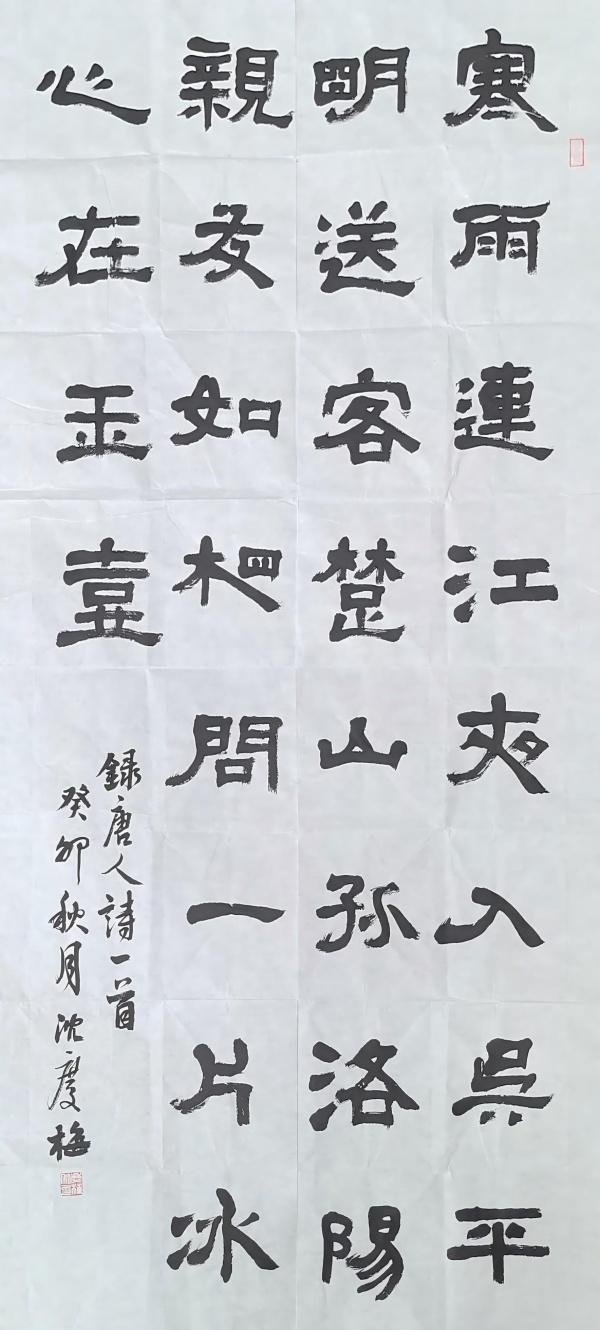 寒雨連江夜入吳平
明送客楚山孤洛陽
親友如相問一片冰
心在玉壺
録唐人詩一首
癸卯秋月沈慶梅